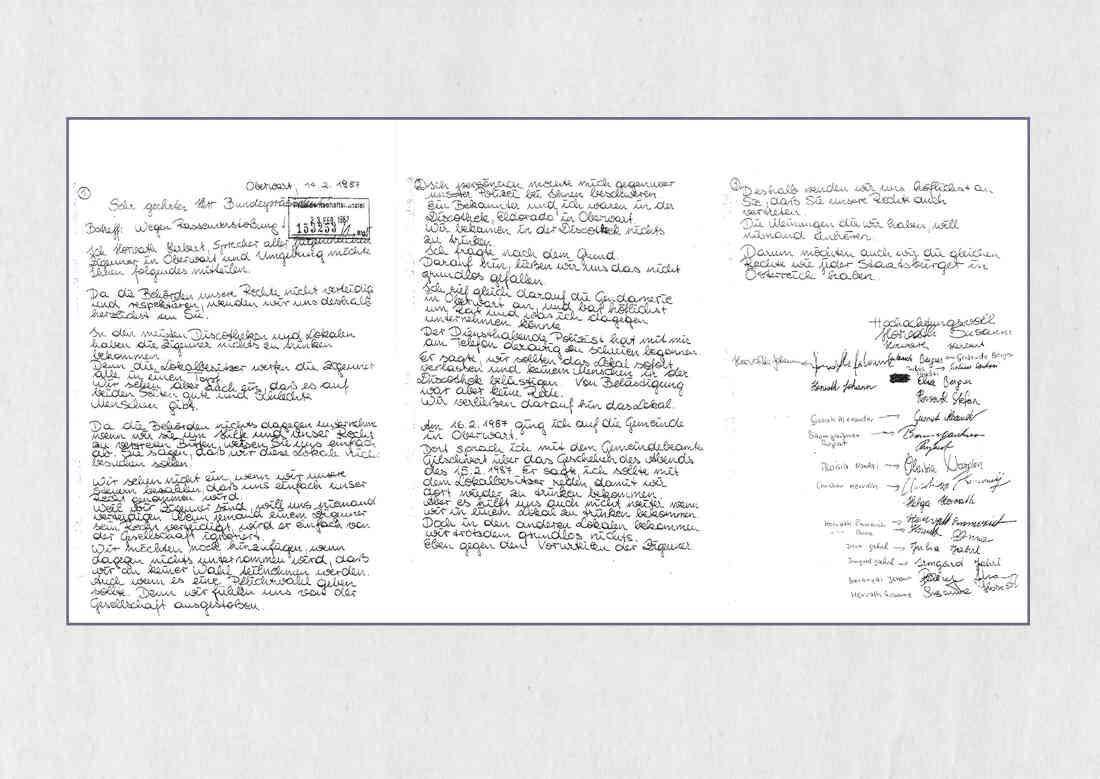 ①
Oberwart, 19.2.1987
Sehr geehrter Herr Bundespräsident
Präsidentschaftskanzlei
23. FEB. 1987
153253
Betreff: Wegen Rassenverstoßung!
Ich Horvath Herbert, Sprecher aller
Zigeuner in Oberwart und Umgebung möchte
Ihnen folgendes mitteilen.
Da die Behörden unsere Rechte nicht verteidig
und respektieren, wenden wir uns deshalb
herzlichst an Sie.
In den meisten Discotheken und Lokalen
haben die Zigeuner nichts zu trinken
bekommen.
Denn die Lokalbesitzer werfen die Zigeuner
alle in einen Topf.
Wir sehen aber auch ein, daß es auf
beiden Seiten gute und schlechte
Menschen gibt.
Da die Behörden nichts dagegen unternehmen
wenn wir sie um Hilfe und unser Recht
zu vertreten bitten, weisen Sie uns einfach
ab. Sie sagen, daß wir diese Lokale nicht
besuchen sollen.
Wir sehen nicht ein wenn wir unsere
Steuern bezahlen, daß uns einfach unser
Recht genommen wird.
Weil wir Zigeuner sind, will uns niemand
verteidigen. Wenn jemand einem Zigeuner
sein Recht verteidigt, wird er einfach von
der Gesellschaft ignoriert.
Wir möchten noch hinzufügen, wenn
dagegen nichts unternommen wird, daß
wir an keiner Wahl teilnehmen werden.
Auch wenn es eine Pflichtwahl geben
sollte. Denn wir fühlen uns von der
Gesellschaft ausgestoßen.
②
Ich persönlich möchte mich gegenüber
unserer Polizei bei Ihnen beschweren
Ein Bekannter und ich waren in der
Discothek „Eldorado" in Oberwart
Wir bekamen in der Discothek nichts
zu trinken.
Ich fragte nach dem Grund.
Darauf hin, ließen wir uns das nicht
grundlos gefallen
Ich rief gleich darauf die Gendamerie
in Oberwart an, und bat höflichst
um Rat und was ich dagegen
unternehmen könnte
Der Diensthabende Polizist hat mit mir
am Telefon derartig zu schreien begonnen
Er sagte, wir sollten das Lokal sofort
verlassen und keinem Menschen in der
Discothek belästigen. Von Belästigung
war aber keine Rede.
Wir verließen darauf hin das Lokal.
Am 16.2.1987 ging ich auf die Gemeinde
in Oberwart.
Dort sprach ich mit dem Gemeindebeamte
über das Geschehen des Abends
des 15.2.1987. Er sagte, ich sollte mit
dem Lokalbesitzer reden, damit wir
dort wieder zu trinken bekommen
Aber es hilft uns auch nicht weiter wenn
wir in einem Lokal zu trinken bekommen
Doch in den anderen Lokalen bekommen
wir trotzdem grundlos nichts.
Eben gegen den Vorurteilen der Zigeuner
③
Deshalb wenden wir uns höflichst an
Sie, daß Sie unsere Rechte auch
vertreten.
Die Meinungen die wir haben, will
niemand anhören.
Darum möchten auch wir die gleichen
Rechte wie jeder Staatsbürger in
Österreich haben.
Hochachtungsvoll
Horvath
Horvath Johann
Berger
Horvath Johann
Elke Berger
Horvath Stefan
Sarah Alexander
Baumgartner
Helga Horvath
Horvath
Julia
Irmgard
Horvath Susanne
Susanne